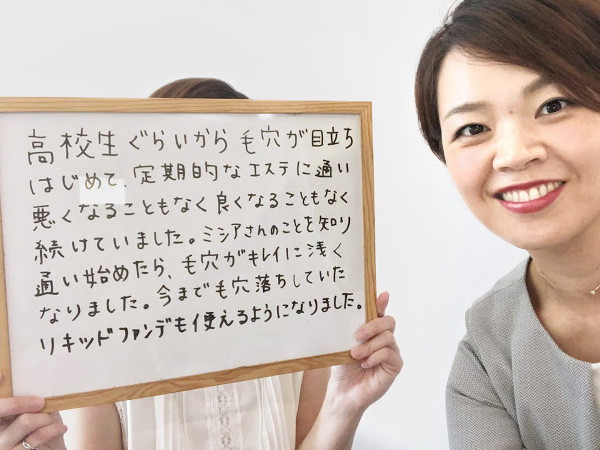 高校生ぐらいから毛穴が目立ち
はじめて定期的なエステに通い
悪くなることもなく良くなることもなく
続けていました。ミシアさんのことを知り
通い始めたら、毛穴がキレイに浅く
なりました。今までも穴落ちしていた
リキッドファンデも使えるようになりました。